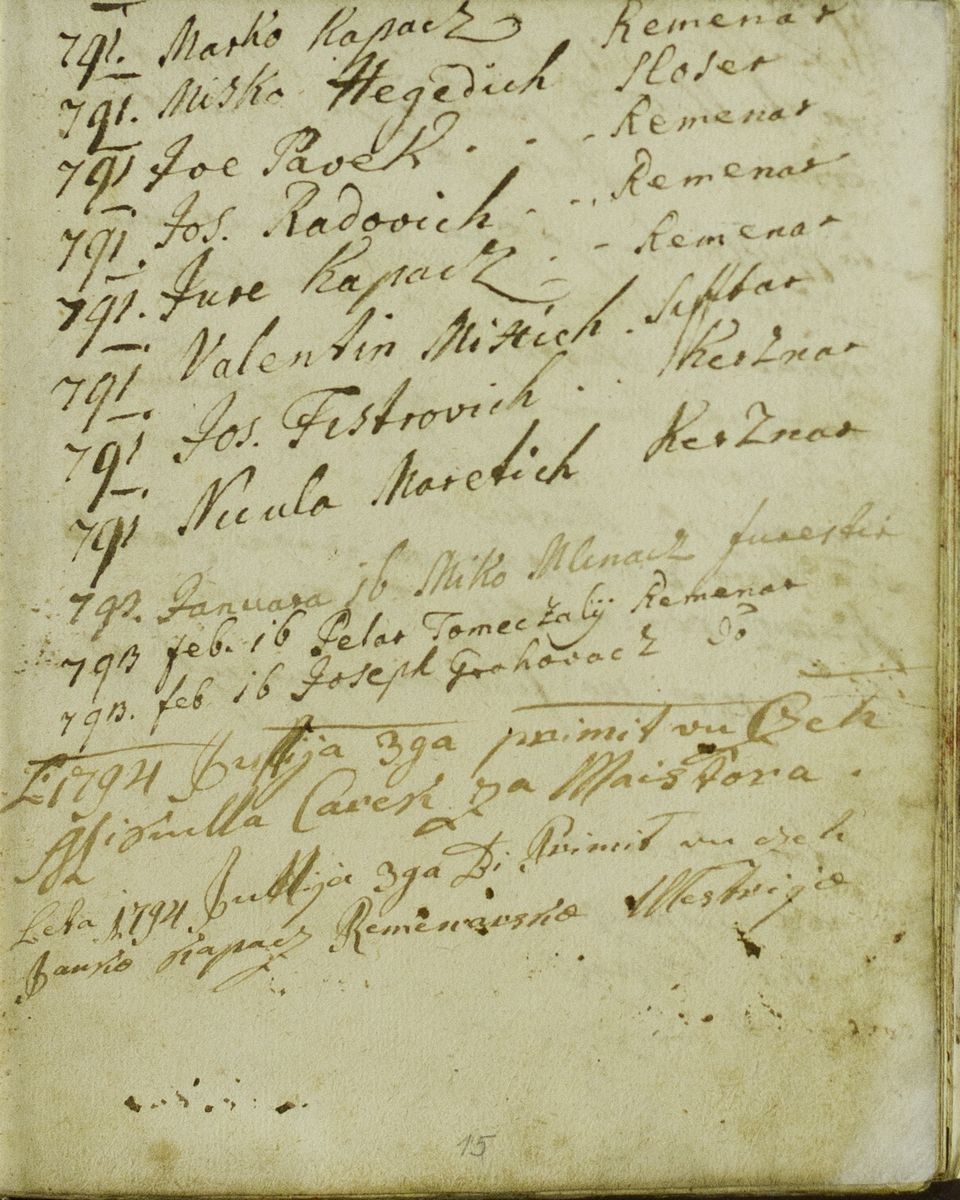 791. Marko Kapacz Remenar
791. Misko Hegedich Sloser
791 Joe Pavek . . . Remenar
791. Jos. Radovich . . . Remenar
791. Jure Kapacz . - Remenar
791. Valentin Mittich .
791 Jos. Festrovich . . Kerznar
791 Nicula Maretich Kerznar
793. Januara 16 Miko Mlinacz furestir
793 feb. 16 Petar Tomeczalij Remenar
793. feb 16 Joseph Grahovacz do
L. 1794 Jullija 3ga primit vu Czeh
Mikulla Carek za Maistora .
Leta 1794 Jullija 3ga Di Primit vu czeh
Janko Kapacz Remenarske Mestrije
15